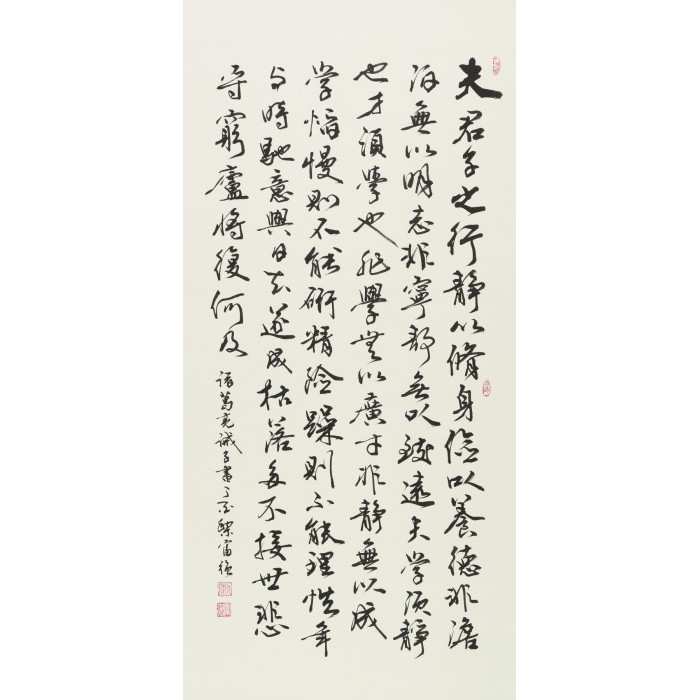 夫君子之行靜以脩身儉以養德非澹
泊無以明志非寧靜無以致遠夫学須靜
也才須學也非學無以廣才非靜無以成
学慆慢則不能研精險躁則不能理性年
与時馳意與日去遂成枯落多不接世悲
守窮廬將復何及
諸葛亮誡子書